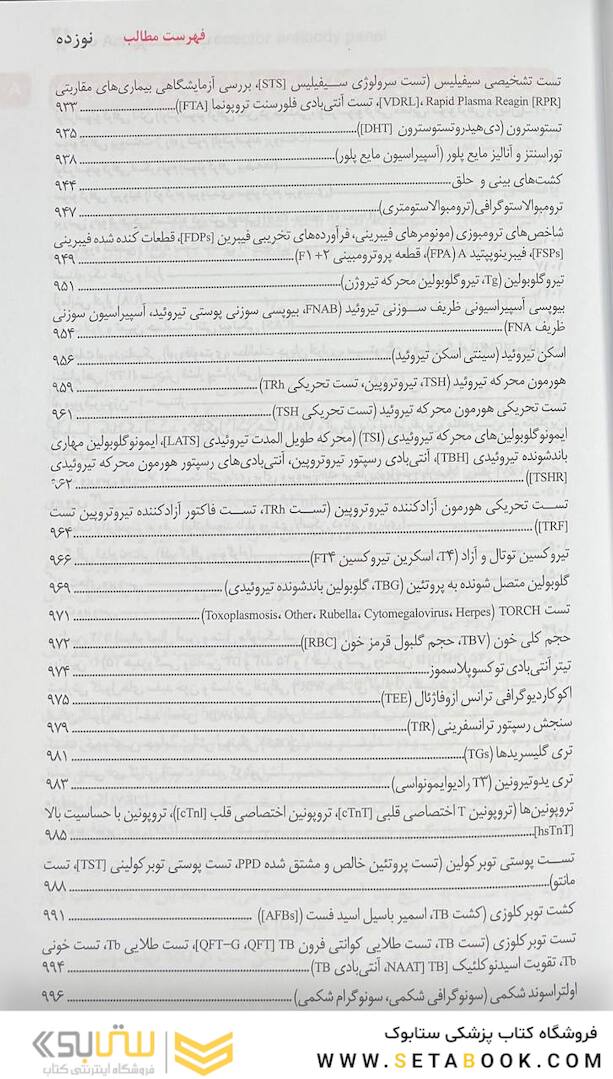 فهرست مطالب نوزده
تست تشخیصی سیفیلیس (تست سرولوژی سـیفیلیس [STS]، بررسی آزمایشگاهی بیماری‌های مقاربتی
[VDRL]، Rapid Plasma Reagin [RPR]، تست آنتی‌بادی فلورسنت تروپونما [FTA])..........۹۳۳
تستوسترون (دی‌هیدروتستوسترون [DHT])..........۹۳۵
توراسنتز و آنالیز مایع پلور (آسپیراسیون مایع پلور)..........۹۳۸
کشت‌های بینی و حلق..........۹۴۴
ترومبوالاستوگرافی(ترومبوالاستومتری)..........۹۴۷
شاخص‌های ترومبوزی (مونومرهای فیبرینی، فرآورده‌های تخریبی فیبرین [FDPs]، قطعات کَنده شده فیبرینی
[FSPs]، فیبرینوپپتید A (FPA)، قطعه پروترومبینی ۲+ F۱)..........۹۴۹
تیروگلوبولین (Tg، تیروگلوبولین محرکه تیروژن)..........۹۵۱
بیوپسی آسپیراسیونی ظریف سـوزنی تیروئید (FNAB، بیوپسی سوزنی پوستی تیروئید، آسپیراسیون سوزنی
ظریف FNA)..........۹۵۴
اسکن تیروئید (سینتی اسکن تیروئید)..........۹۵۶
هورمون محرکه تیروئید (TSH، تیروتروپین، تست تحریکی TRh)..........۹۵۹
تست تحریکی هورمون محرکه تیروئید (تست تحریکی TSH)..........۹۶۱
ایمونوگلوبولین‌های محرکه تیروئیدی (TSI) (محرکه طویل المدت تیروئیدی [LATS]، ایمونوگلوبولین مهاری
باندشونده تیروئیدی [TBH]، آنتی‌بادی رسپتور تیروتروپین، آنتی‌بادی‌های رسپتور هورمون محرکه تیروئیدی
[TSHR])..........۹۶۲
تسـت تحریکی هورمون آزادکننده تیروتروپین (تسـت TRh، تسـت فاکتور آزادکننده تیروتروپین تست
[TRF])..........۹۶۴
تیروکسین توتال و آزاد (T۴، اسکرین تیروکسین FT۴)..........۹۶۶
گلوبولین متصل شونده به پروتئین (TBG، گلوبولین باندشونده تیروئیدی)..........۹۶۹
تست TORCH (Toxoplasmosis، Other، Rubella، Cytomegalovirus، Herpes)..........۹۷۱
حجم کلی خون (TBV، حجم گلبول قرمز خون [RBC])..........۹۷۲
تیتر آنتی‌بادی توکسوپلاسموز..........۹۷۴
اکوکاردیوگرافی ترانس ازوفاژئال (TEE)..........۹۷۵
سنجش رسپتور ترانسفرینی (TfR)..........۹۷۹
تری گلیسریدها (TGs)..........۹۸۱
تری یدوتیرونین (T۳ رادیوایمونواسی)..........۹۸۳
تروپونین‌ها (تروپونین T اختصاصی قلبی [cTnT]، تروپونین اختصاصی قلب [cTnI])، تروپونین با حساسیت بالا
[hsTnT]..........۹۸۵
تسـت پوستی توبرکولین (تست پروتئین خالص و مشتق شده PPD، تست پوستی توبرکولینی [TST]، تست
مانتو)..........۹۸۸
کشت توبرکلوزی (کشت TB، اسمیر باسیل اسید فست ([AFBs])..........۹۹۱
تست توبرکلوزی (تست TB، تست طلایی کوانتی فرون QFT–G ،QFT] TB]، تست طلایی Tb، تست خونی
Tb، تقویت اسیدنوکلئیک [NAAT] TB، آنتی‌بادی TB)..........۹۹۴
اولتراسوند شکمی (سونوگرافی شکمی، سونوگرام شکمی)..........۹۹۶
فروشگاه کتاب پزشکی ستابوک
WWW.SETABOOK.COM
ستابوک
فروشگاه اینترنتی کتاب